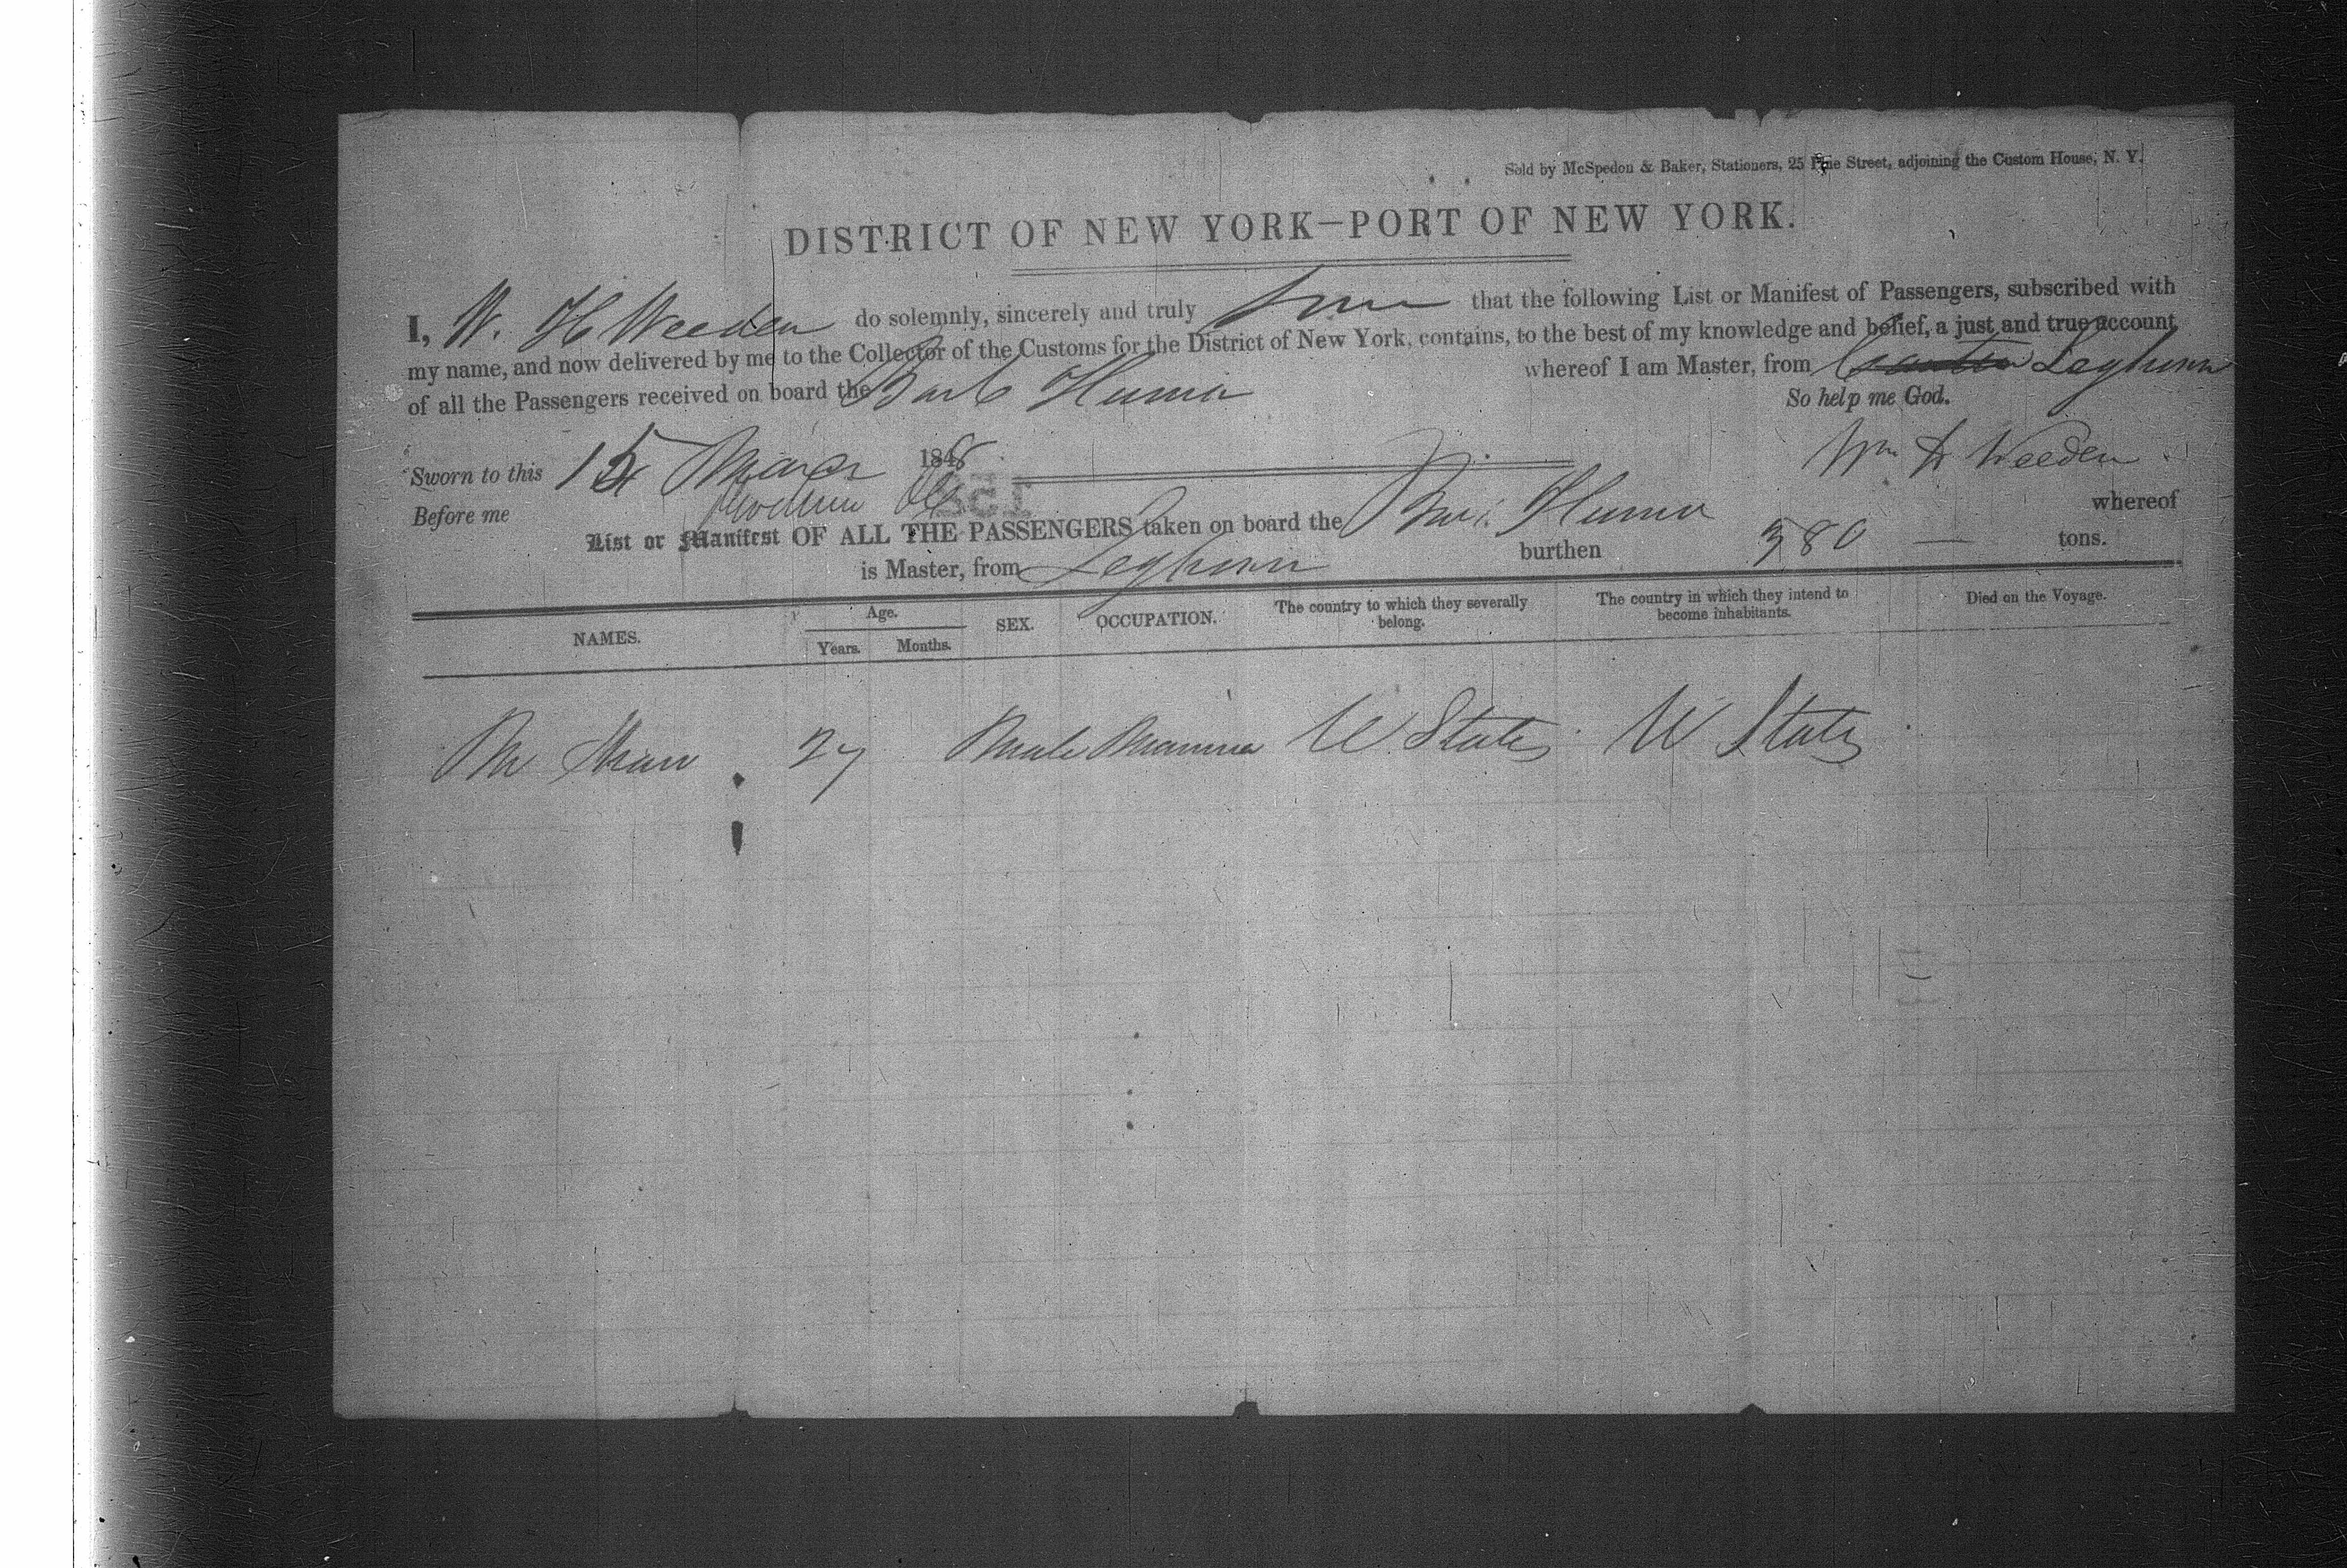 Sold by McSpedon & Baker, Stationers, 25 Pine Street, adjoining the Custom House, N. Y.
DISTRICT OF NEW YORK—PORT OF NEW YORK.
I, W. H Weeden do solemnly, sincerely and truly that the following List or Manifest of Passengers, subscribed with
my name, and now delivered by me to the Collector of the Customs for the District of New York, contains, to the best of my knowledge and belief, a just and true account
of all the Passengers received on board the Bark Huma whereof I am Master, from Leghorn
So help me God.
Sworn to this 15 1848 Wm H Weeden
Before me
List or Manifest OF ALL THE PASSENGERS taken on board the Huma whereof
is Master, from Leghorn burthen 380 — tons.
NAMES. Age. SEX. OCCUPATION. The country to which they severally belong. The country in which they intend to become inhabitants. Died on the Voyage.
Years. Months.
Mr Shaw 27 Male Mariner U States U States